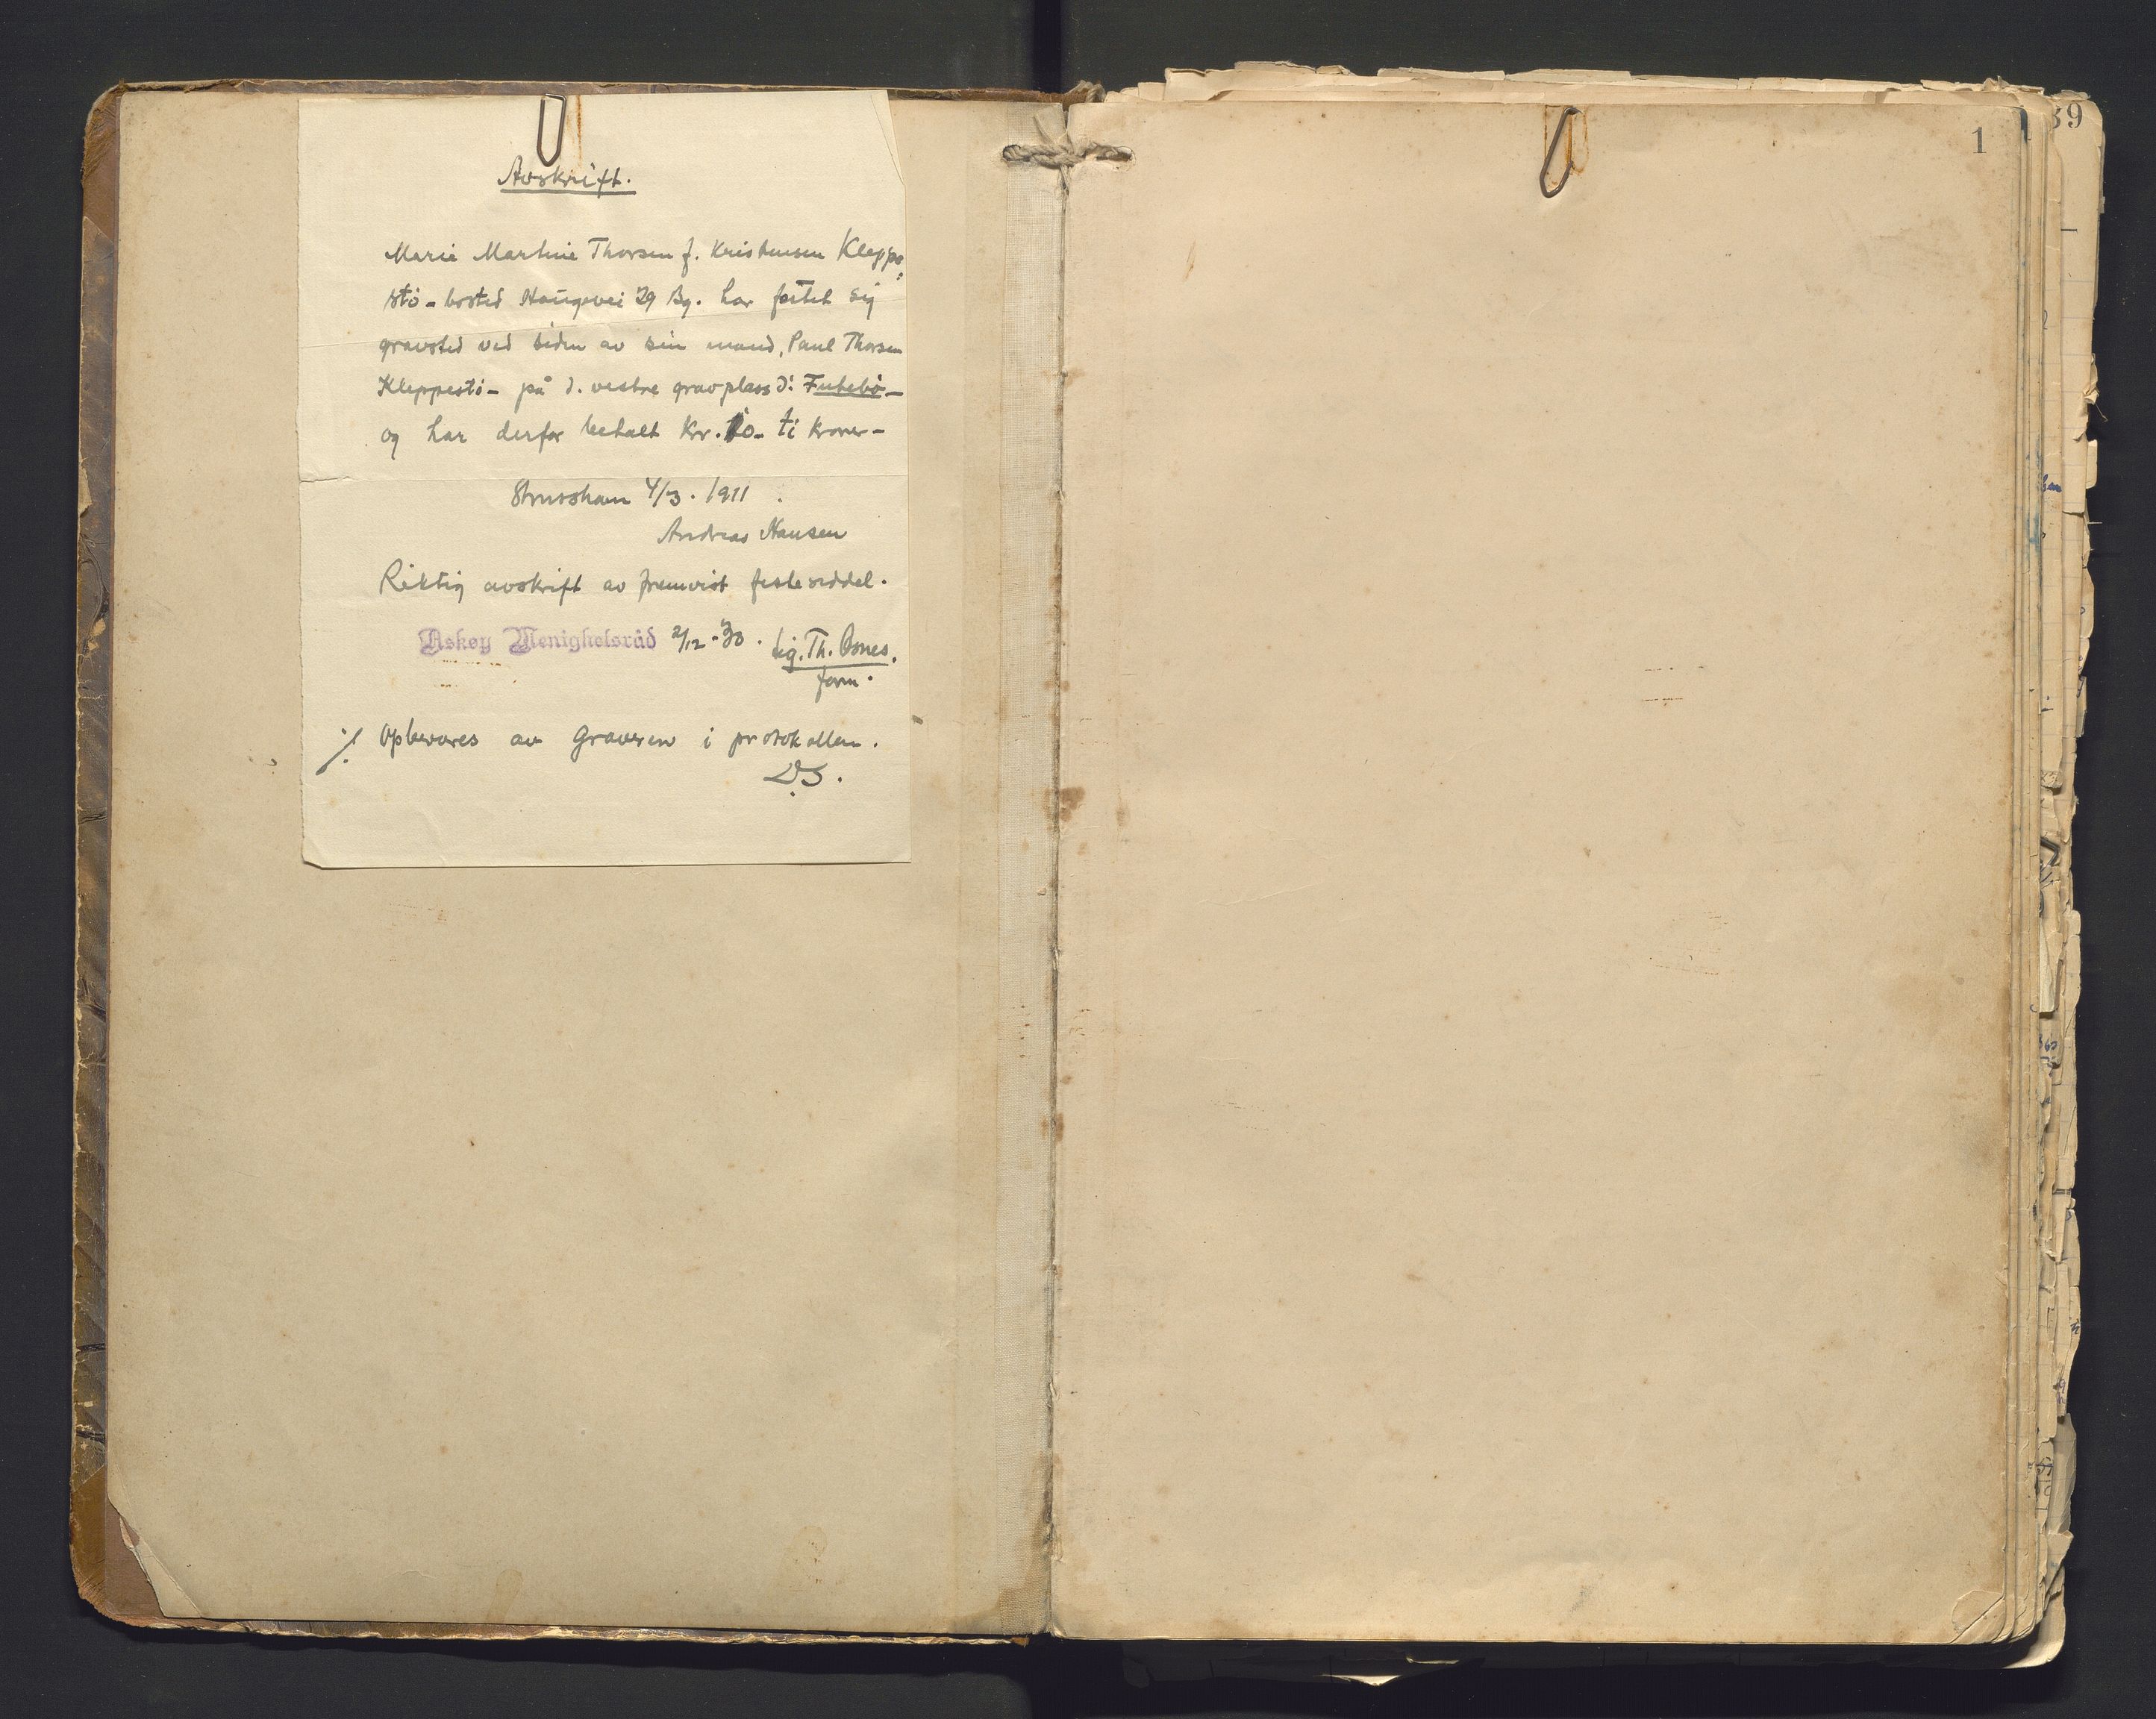 Avskrift.
Marie Martine Thorsen f. Kristensen Kleppe
stö - bosted Haugevei 29 By. har festet sig
gravsted ved siden av sin mand, Paul Thorsen
Kleppestö - på d. vestre gravplass d:
og har derfor betalt Kr. 10 - ti kroner -
Strusshavn 4/3. 1911
Andreas Hansen
Riktig avskrift av fremvist festeseddel.
Askøy Menighetsråd 2/12 - 30. sig. Th. Bønes.
form.
·/. Opbevares av Graveren i protokollen.
D.S.
1
39